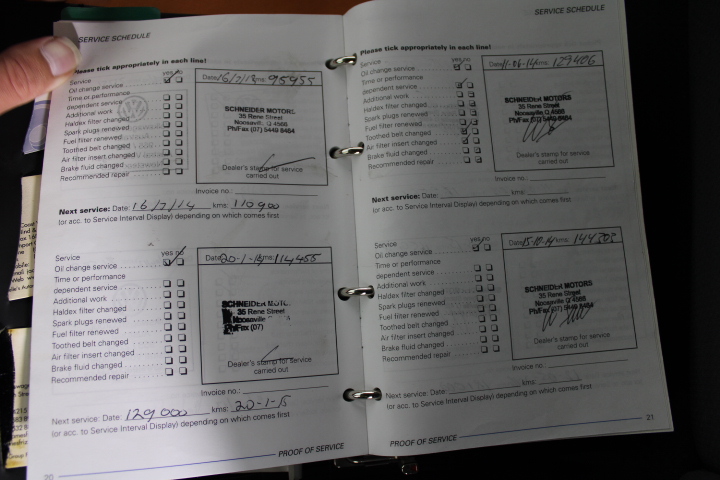 SERVICE SCHEDULE
Please tick appropriately in each line!
yes no
Service
Oil change service
Time or performance
dependent service
Additional work
Haldex filter changed
Spark plugs renewed
Fuel filter renewed
Toothed belt changed
Air filter insert changed
Brake fluid changed
Recommended repair
Date 16/7/13 kms: 95955
SCHNEIDER MOTORS
35 Rene Street
Noosaville Q 4566
Ph/Fax (07) 5449 8484
Dealer's stamp for service
carried out
Invoice no.:
Next service: Date: 16/7/14 kms: 110900
(or acc. to Service Interval Display) depending on which comes first
yes no
Service
Oil change service
Time or performance
dependent service
Additional work
Haldex filter changed
Spark plugs renewed
Fuel filter renewed
Toothed belt changed
Air filter insert changed
Brake fluid changed
Recommended repair
Date 20-1-14 kms: 114455
SCHNEIDER
35 Rene Street
Noosaville
Ph/Fax (07)
Dealer's stamp for service
carried out
Invoice no.:
Next service: Date: 129000 kms: 20-1-15
(or acc. to Service Interval Display) depending on which comes first
PROOF OF SERVICE
20
SERVICE SCHEDULE
Please tick appropriately in each line!
yes no
Service
Oil change service
Time or performance
dependent service
Additional work
Haldex filter changed
Spark plugs renewed
Fuel filter renewed
Toothed belt changed
Air filter insert changed
Brake fluid changed
Recommended repair
Date 11-06-14 kms: 129406
SCHNEIDER MOTORS
35 Rene Street
Noosaville Q 4566
Ph/Fax (07) 5449 8484
Dealer's stamp for service
carried out
Invoice no.:
Next service: Date: kms:
(or acc. to Service Interval Display) depending on which comes first
yes no
Service
Oil change service
Time or performance
dependent service
Additional work
Haldex filter changed
Spark plugs renewed
Fuel filter renewed
Toothed belt changed
Air filter insert changed
Brake fluid changed
Recommended repair
Date 15-10-14 kms: 144303
SCHNEIDER MOTORS
35 Rene Street
Noosaville Q 4566
Ph/Fax (07) 5449 8484
Dealer's stamp for service
carried out
Invoice no.:
Next service: Date: kms:
(or acc. to Service Interval Display) depending on which comes first
PROOF OF SERVICE
21